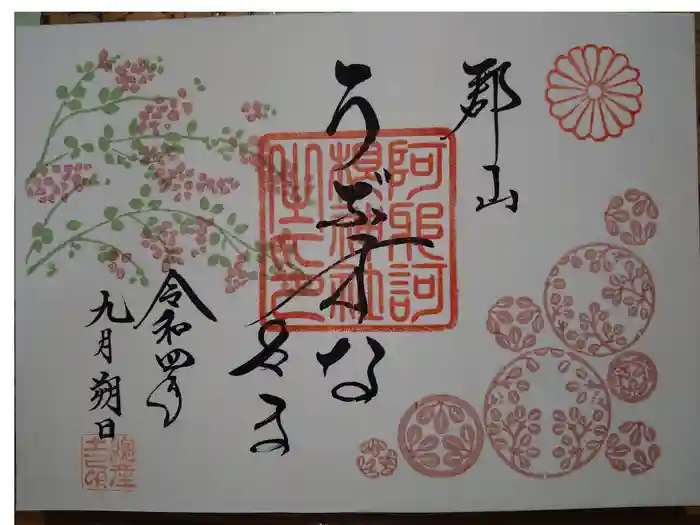 郡山
うぶすな
さま
令和四年
九月朔日
阿邪訶
根神社
之印